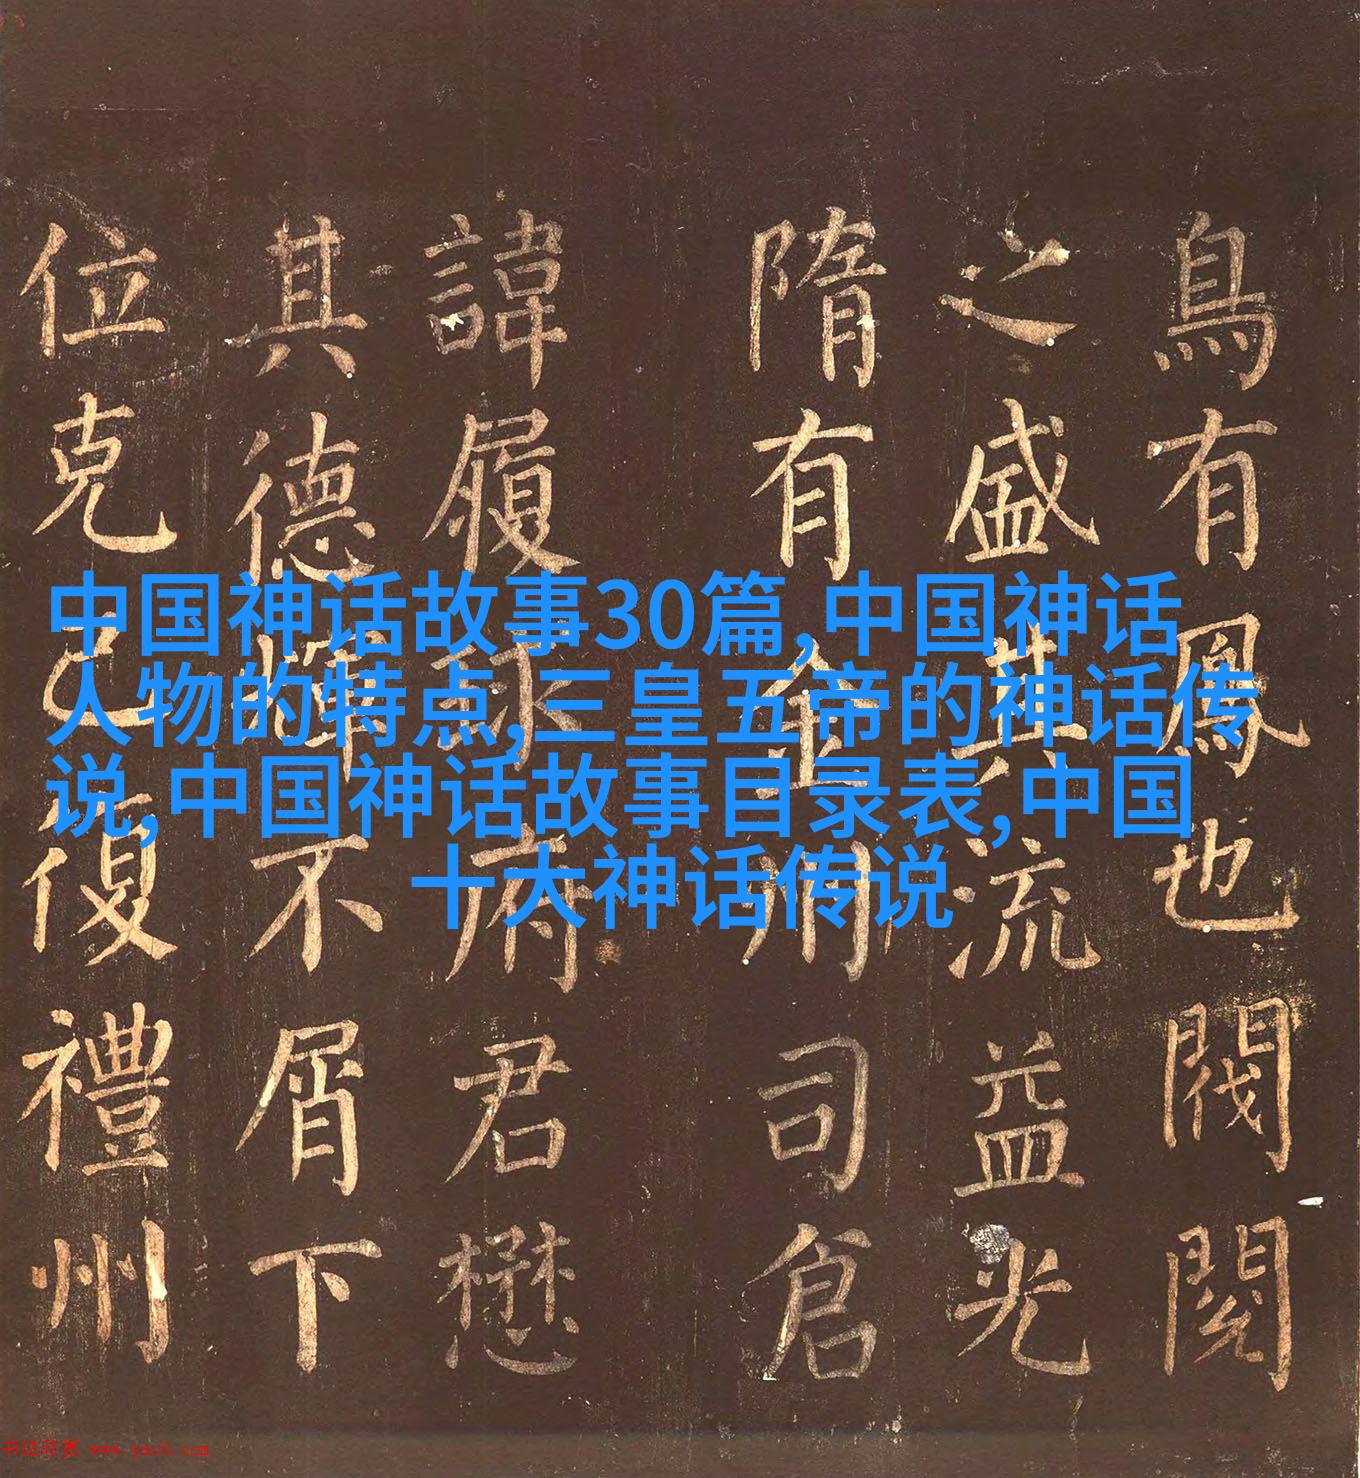 鳥有鳳也閥閱
之盛世流益光
隋有金州司倉
諱履府君懋
其德輝不屑下
位克己復禮州
中国神话故事30篇,中国神话
人物的特点,三皇五帝的神话传
说,中国神话故事目录表,中国
十大神话传说
书法欣赏 www.yac8.com